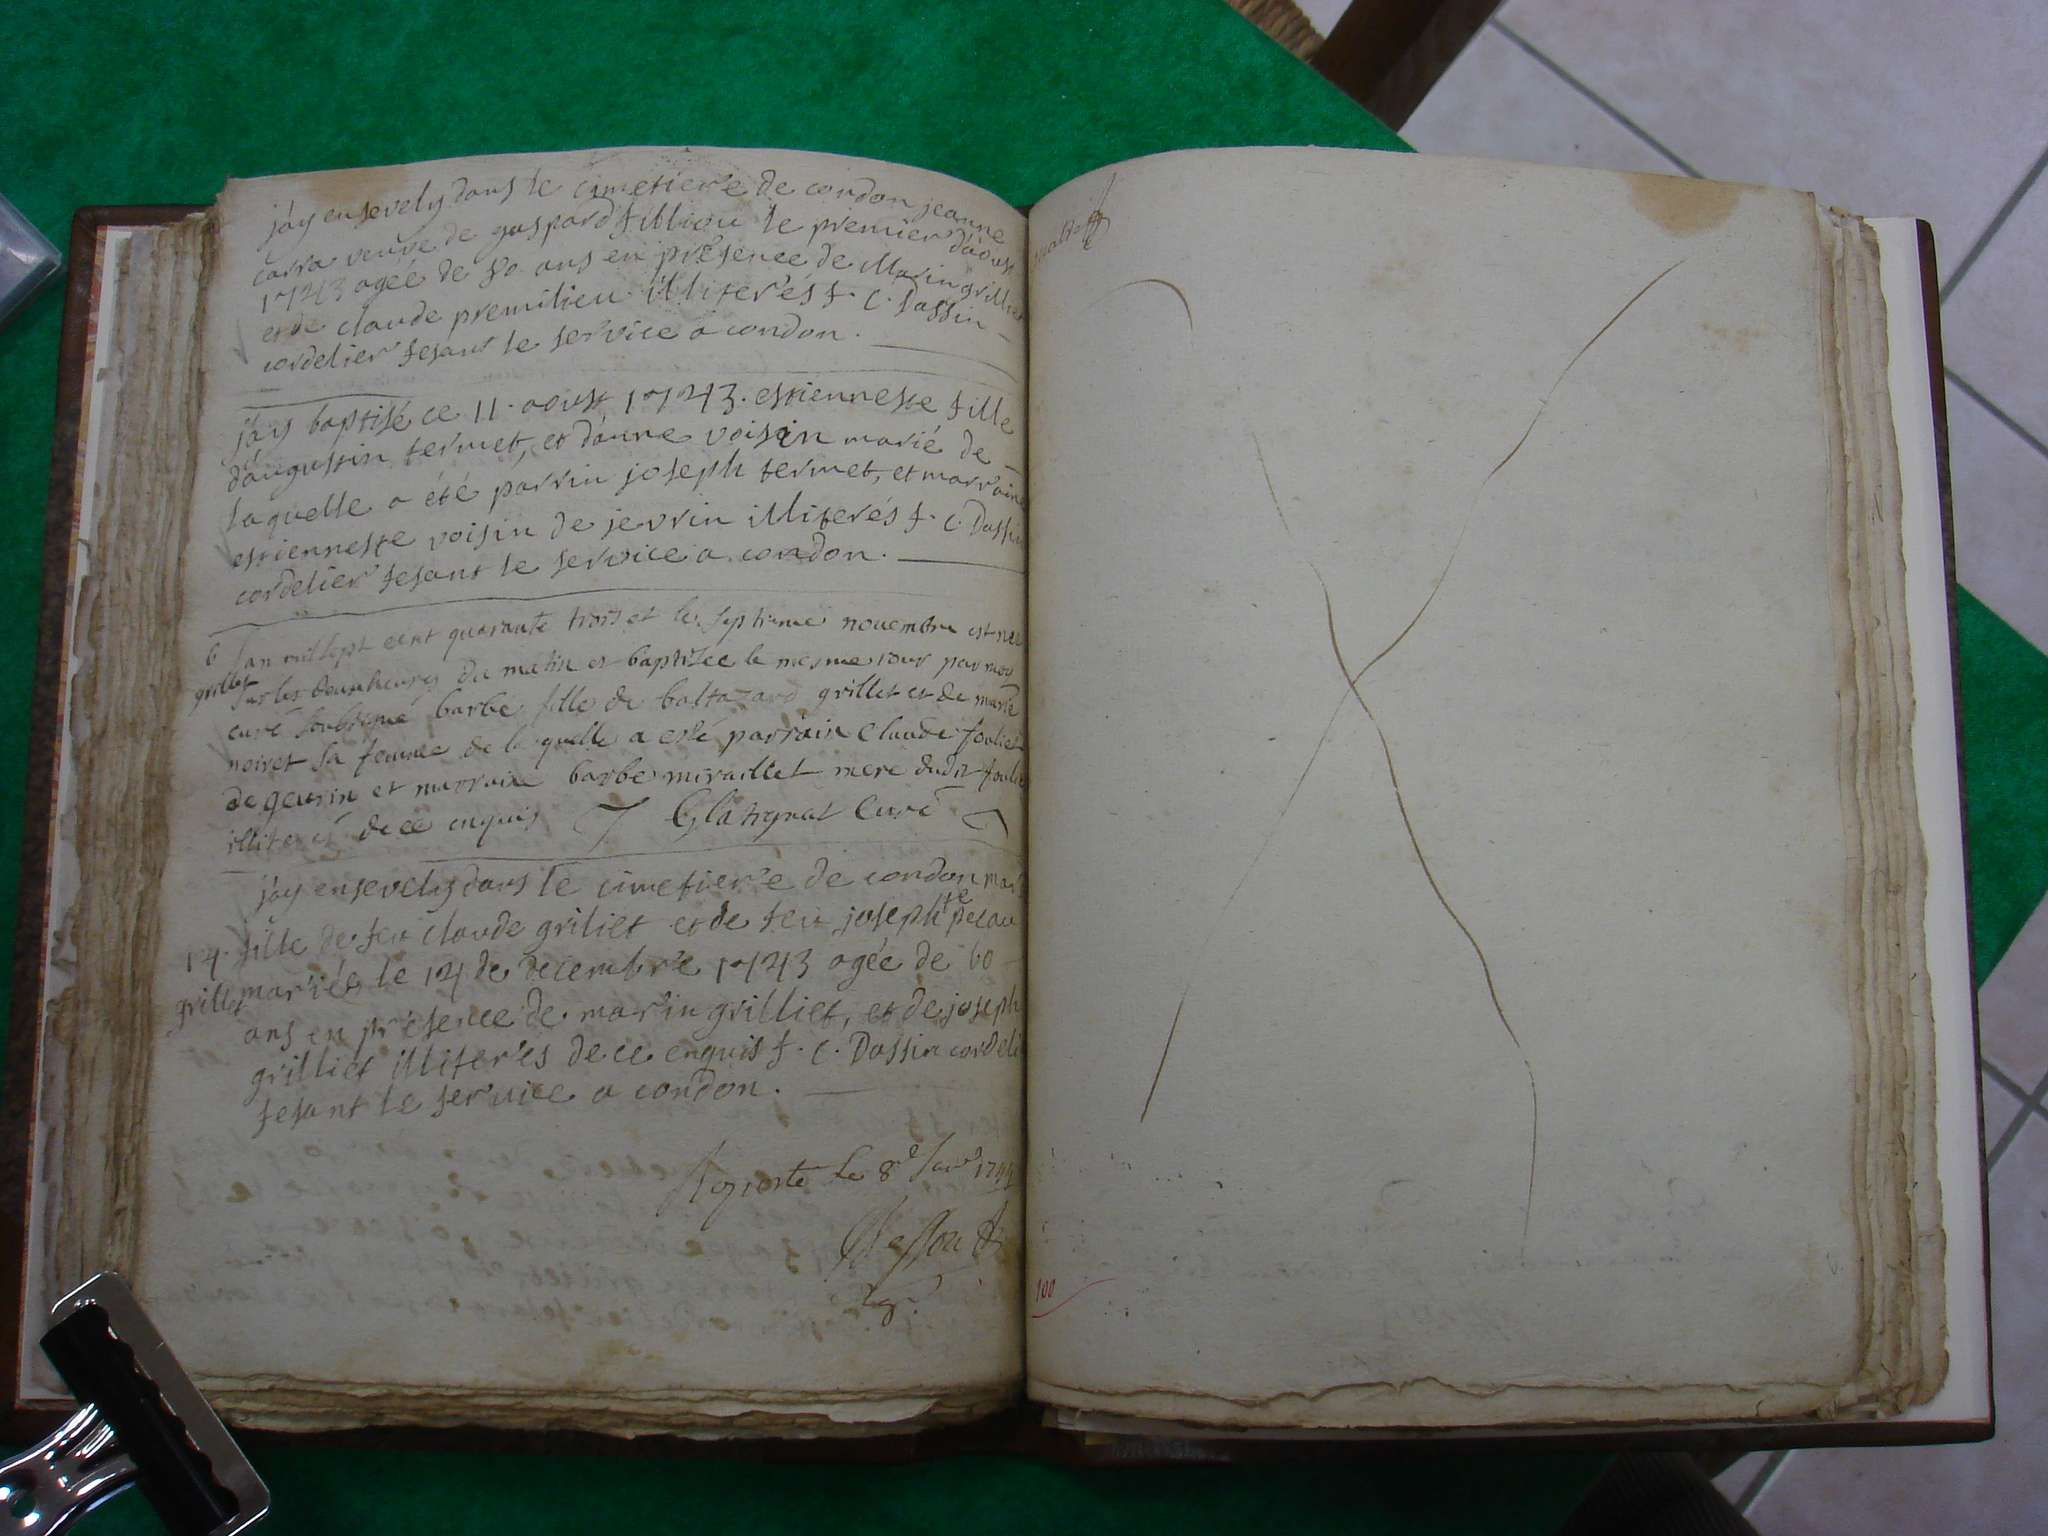 jay ensevely dans le cimetiere de condon jeanne
carra veuve de gaspard filliou le premier daoust
1743 agée de 80 ans en présence de Marin grilliet
et de claude premilieu illiterés f. C. Dassin
cordelier fesant le service a condon.
jáy baptisé ce 11. aoust 1743. estienneste fille
daugustin termet, et dánne voisin marié de
laquelle a été parrin joseph termet, et marraine
estienneste voisin de jevrin illiterés f. C. Dassin
cordelier fesant le service a condon.
6 lan mil sept cent quarante trois et le septieme novembre est nee
grillet sur les deux heures du matin et baptisée le mesme iour par moy
curé soubsigné barbe fille de baltazard grillet et de marie
noiret sa femme de la quelle a esté parrain Claude fouliet
de gevrin et marraine barbe miraillet mere dudit fouliet
illiterés de ce enquis Glatignat Curé
jáy ensevely dans le cimetiere de condon
14. fille de feu claude griliet et de feu joseph
grillet mariés le 14 de decembre 1743 agée de 60
ans en présence de marin grilliet, et de joseph
grilliet illiterés de ce enquis f. C. Dassin cordelier
fesant le service a condon.
le 8e Janv 1744
100